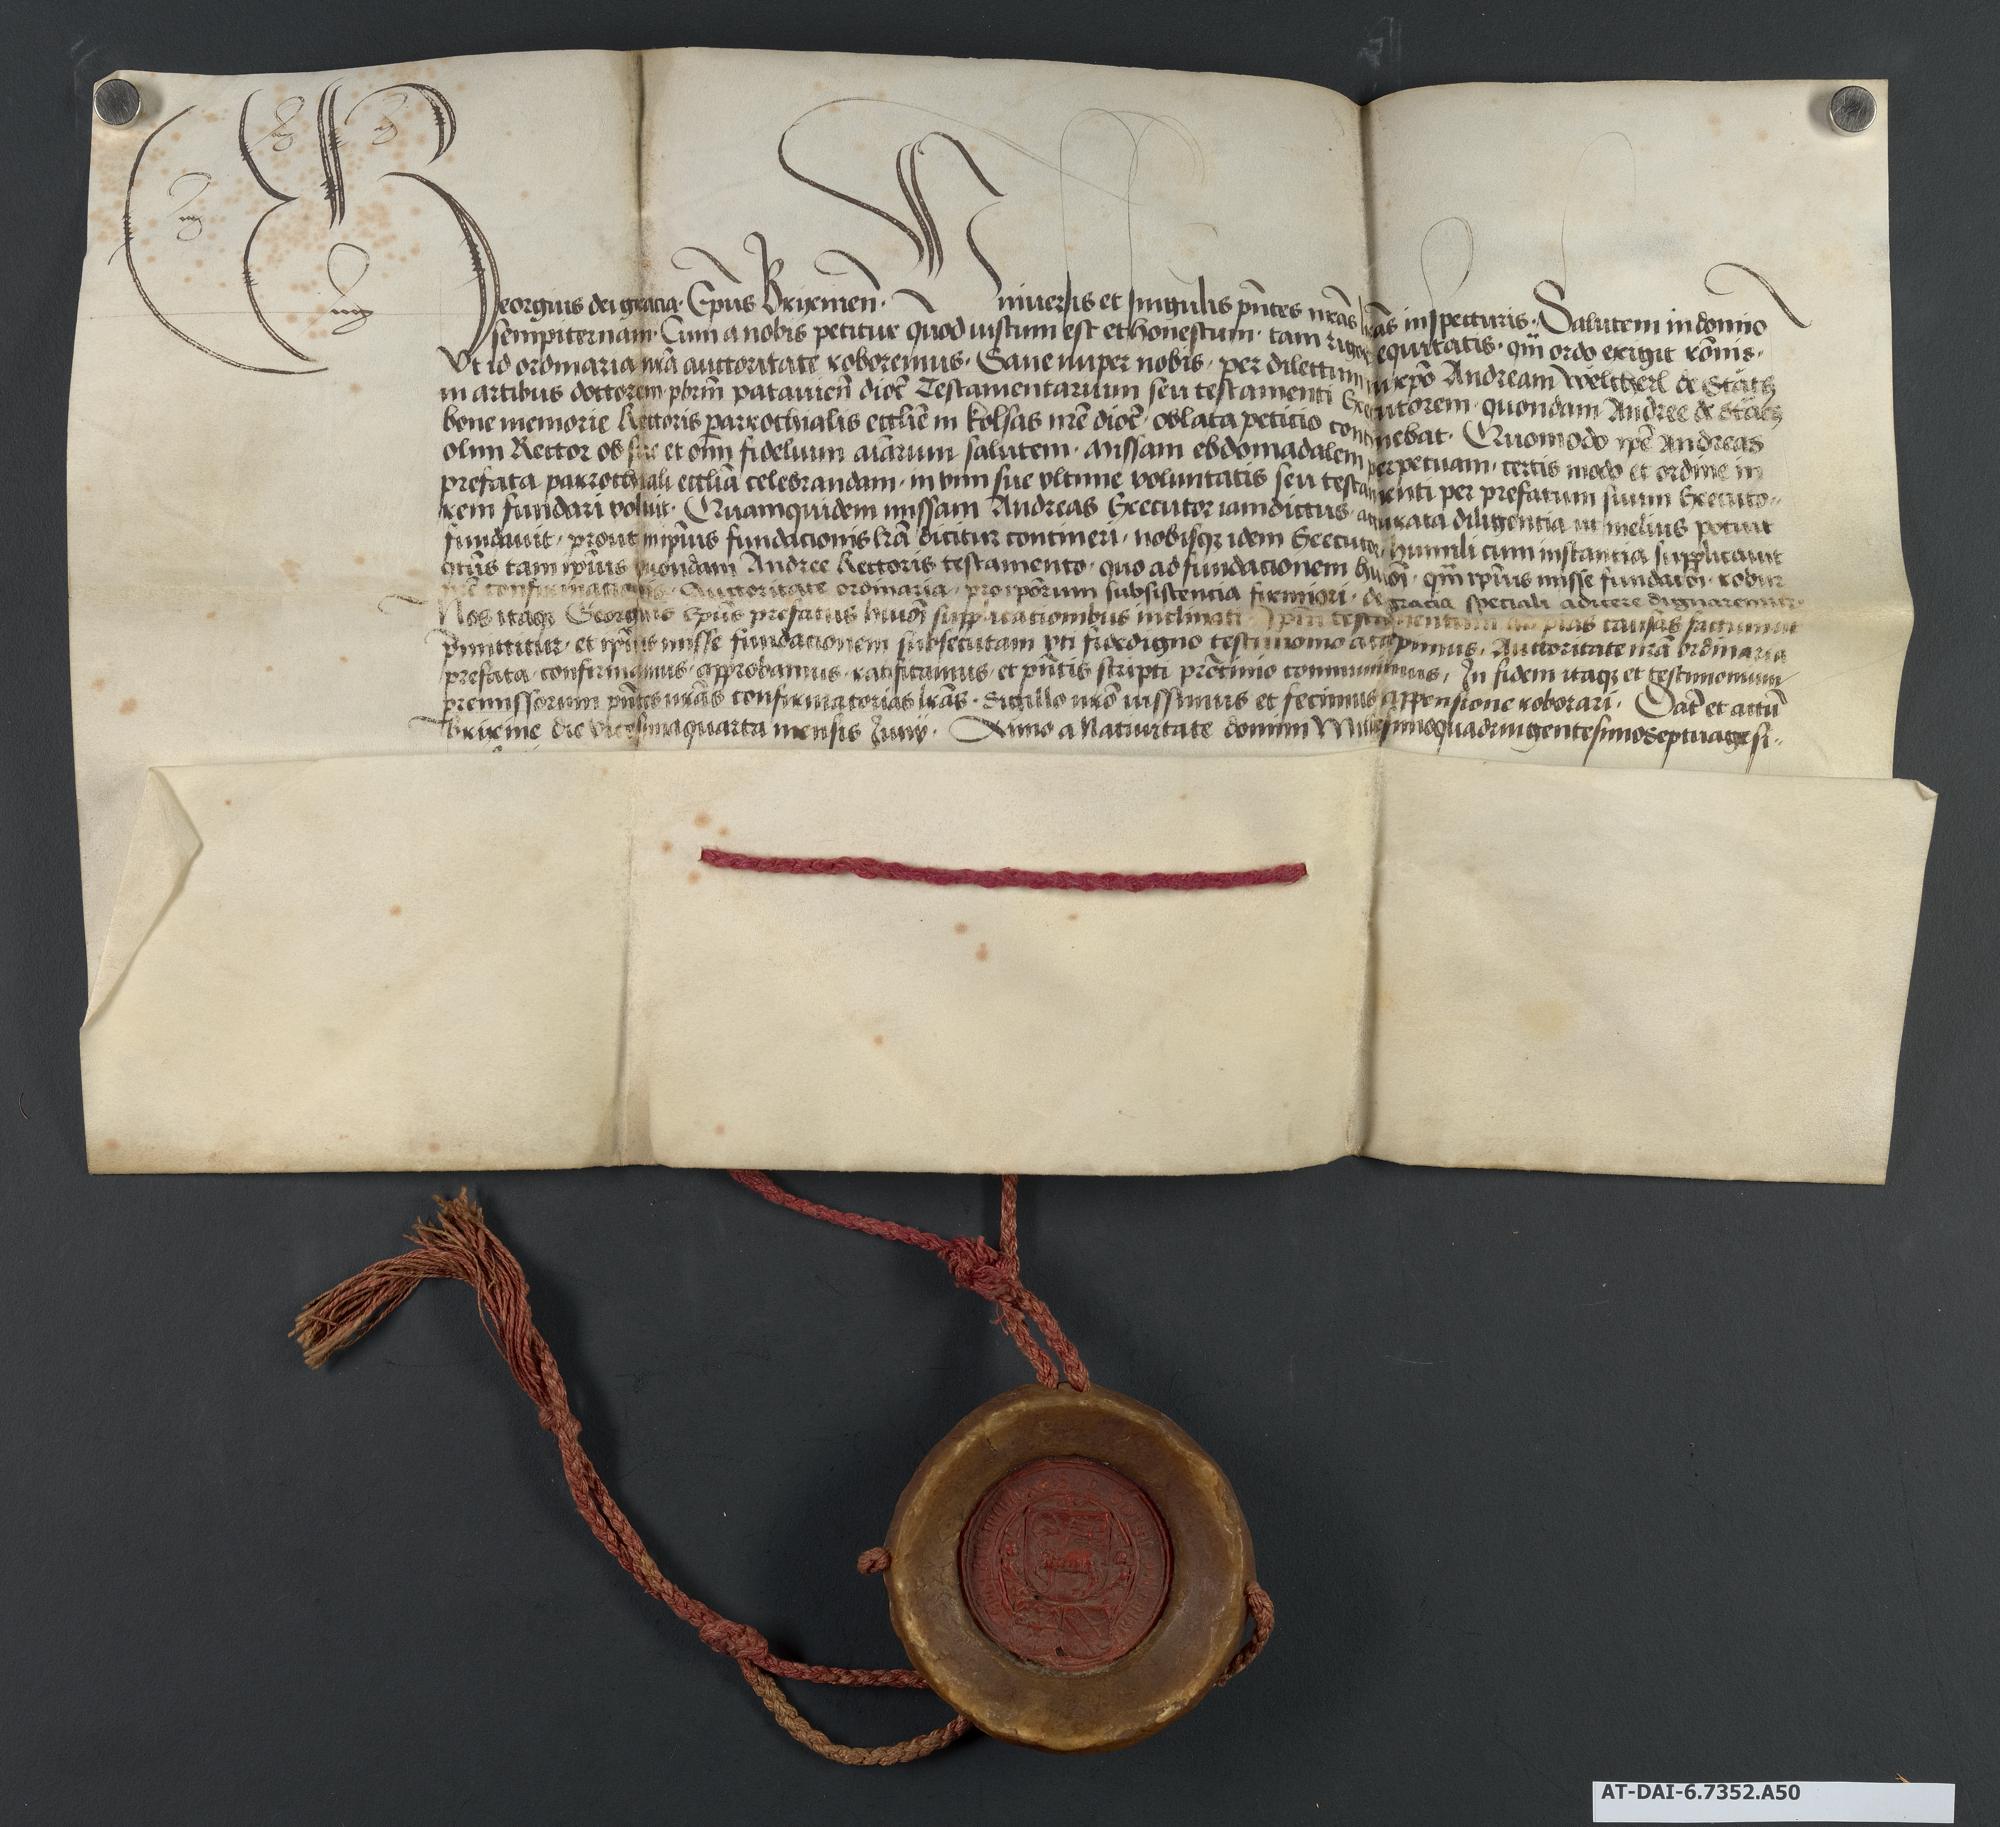 Georgius dei gracia · Ep̄us Brixinen̄ · Universis et singulis pn̄tes nr̄as lr̄as inspecturis · Salutem in domino
sempiternam · Cum a nobis petitur quod iustum est et honestum · tam rigor equitatis · qm̄ ordo exigit rōnis ·
Vt id ordinaria nr̄a auctoritate roboremus · Sane nuper nobis · per dilectum in xp̄o Andream Weltherl de
in artibus doctorem pbrm̄ patavien̄ dioc̄ Testamentarium seu testamenti Executorem · quondam Andree de
bone memorie Rectoris parrochialis ecclīe in kolsas nr̄e dioc̄ · oblata petitio continebat · Quomodo ip̄e Andreas
olim Rector ob sue et om̄ fidelium aīarum salutem · missam ebdomadalem perpetuam · certis modo et ordine in
prefata parrochiali ecclīa celebrandam · in vim sue ultime voluntatis seu testamenti per prefatum suum Executo-
rem fundari voluit · Quamquidem missam Andreas Executor iamdictus · accurata diligentia ut melius potuit
fundavit · prout in ip̄ius fundacionis lr̄a dicitur contineri · nobisqꝫ idem Executor humili cum instantia supplicavit
tam ip̄ius quondam Andree Rectoris testamento · quo ad fundacionem · qm̄ ip̄ius misse fundacōi · robur
nr̄e confirmacionis · Auctoritate ordinaria · pro ip̄orum subsistencia firmiori · de gracia speciali adicere dignaremur ·
Nos itaqꝫ Georgius Ep̄us prefatus supplicationibus inclinati · ip̄m testamentum ad pias causas factum
et ip̄ius misse fundacionem subsecutam vti fidedigno testimonio accepimus · Auctoritate nr̄a ordinaria
prefata · confirmamus · approbamus · ratificamus · et pn̄tis scripti communimus · In fidem itaqꝫ et testimonium
premissorum pn̄tes nr̄as confirmatorias lr̄as · Sigillo nr̄o iussimus et fecimus appensione roborari · Dat̄ et actū
Brixine die vicesimaquarta mensis Junij · Anno a Nativitate domini Millesimoquadringentesimoseptuagesi-
AT-DAI-6.7352.A50